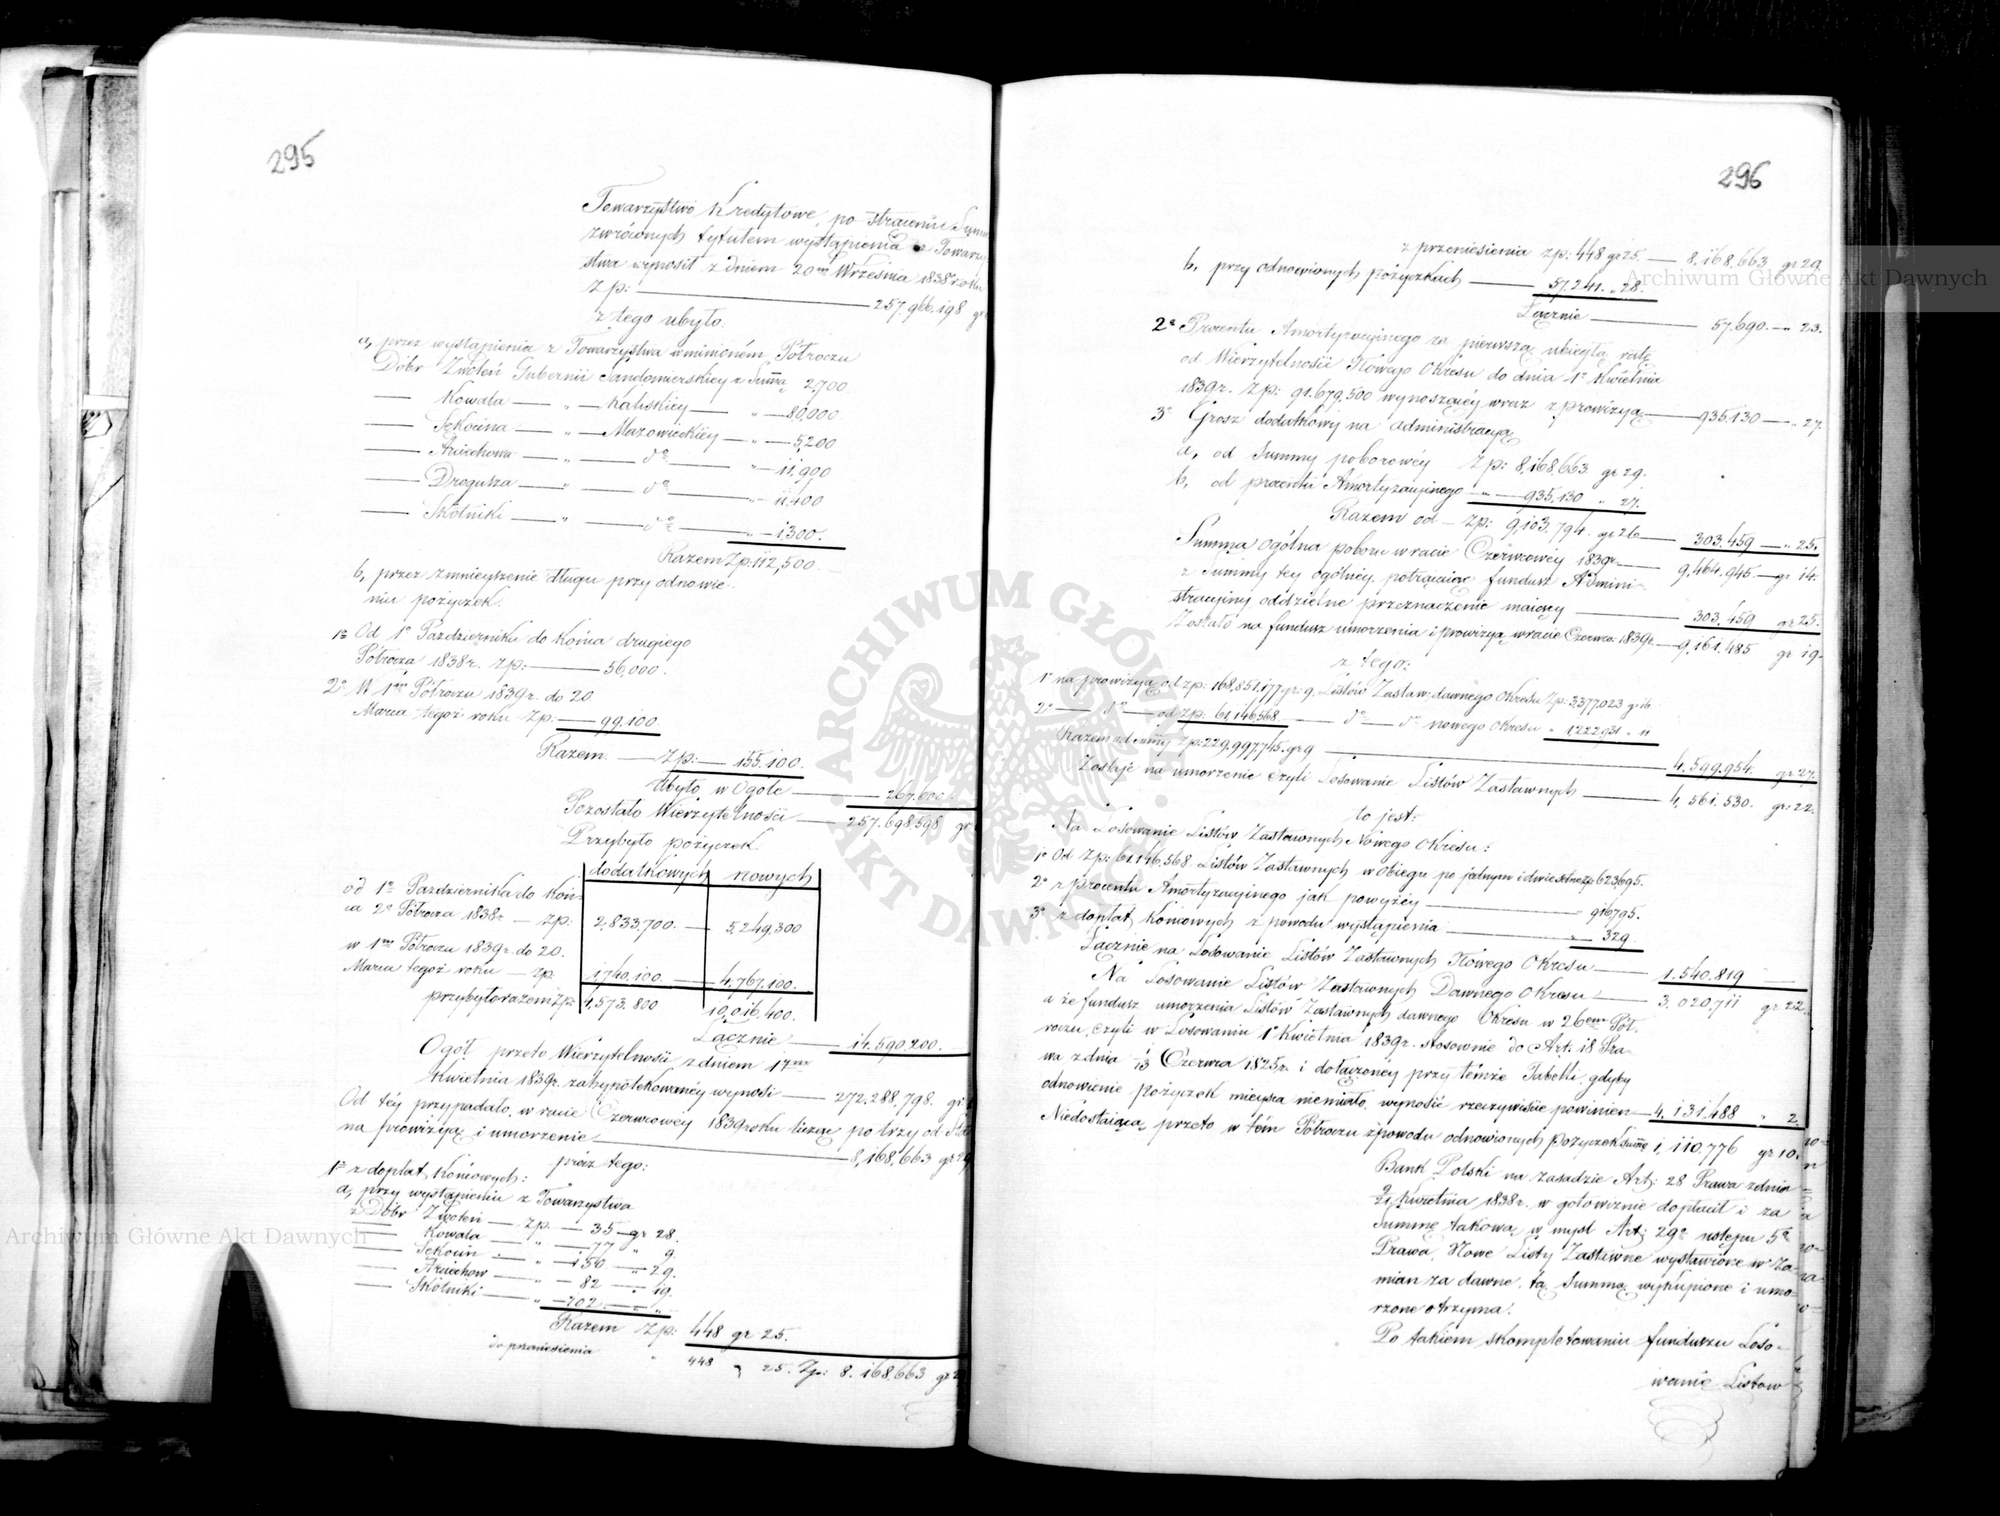 295
Towarzystwo Kredytowe, po straceniu Summ
zwróconych tytułem wystąpienia z Towarzy
stwa wynosił z dniem 20m Września 1838 roku
zp: 257,966,198 gr
z tego ubyło.
a, przez wystąpienia z Towarzystwa w minioném Półroczu
Dóbr Zwoleń Gubernii Sandomierskiey z Summą 2,700
Kowala — „ — Kaliskiey — „ — 80,000
Sękocina — „ — Mazowieckiey — „ — 5,200
— „ — do — „ — 11,900
Drogusza — „ — do — „ — 11,400
Skolniki — „ — do — „ — 1,300.
Razem Zp: 112,500.
b, przez zmnieyszenie długu przy odnowie-
niu pożyczek.
1o Od 1o Października do końca drugiego
Półrocza 1838 r. zp: — 56,000.
2o W 1m Półroczu 1839 r. do 20
Marca tegoż roku zp: — 99,100.
Razem — zp: — 155,100.
Ubyło w Ogóle — 267,600
Pozostało Wierzytelności — 257,698,598 gr
Przybyło pożyczek
dodatkowych nowych
od 1o Października do koń-
ca 2o Półrocza 1838 r — zp: 2,833,700. — 5,249,300
w 1m Półroczu 1839 r. do 20.
Marca tegoż roku — zp. 1,740,100. — 4,767,100.
przybyło razem zp: 4,573,800 10,016,400.
Łącznie — 14,590,200.
Ogół przeto Wierzytelności z dniem 17m
Kwietnia 1839 r. zahypotekowanéy wynosi — 272,288,798. gr
Od téy przypadało, w racie Czerwcowéy 1839 roku licząc po trzy od Sta
na prowizyą i umorzenie — 8,168,663 gr 29
prócz tego:
1o z dopłat, końcowych:
a, przy wystąpieniu z Towarzystwa
z Dóbr Zwoleń — zp. — 35 — gr 28.
Kowala — „ — 77 — „ 9.
Sękocin — „ — 150 — „ 29.
— „ — 82 — „ 19.
Skolniki — „ — 102 — „ „
Razem zp: 448 gr 25.
do przeniesienia „ 448 „ 25. Zp: 8,168,663 gr 2
296
z przeniesienia zp: 448 gr 25. — 8,168,663 gr 29
b, przy odnowionych pożyczkach — 57,241. „ 28.
Łącznie — 57,690. — „ 23.
2o Procentu Amortyzacyjnego za pierwszą ubiegłą ratę
od Wierzytelności Nowego Okresu do dnia 1o Kwietnia
1839 r. zp: 91,679,500 wynoszącéy wraz z prowizyą — 935,130 — „ 27.
3o Grosz dodatkowy na administracyą
a, od Summy poborowéy zp: 8,168,663 gr 29.
b, od procentu Amortyzacyjnego „ — 935,130 „ 27.
Razem od — zp: 9,103,794. gr 26 — 303,459 — „ 25.
Summa ogólna poboru w racie Czerwcowéy 1839 r — 9,464,945 — gr 14.
z Summy tey ogólnéy, potrącając fundusz Admini-
stracyjny oddzielne przeznaczenie maiący — 303,459 gr 25.
Zostało na fundusz umorzenia i prowizyą w racie Czerwco: 1839 r. — 9,161,485 gr 19.
z tego:
1o na prowizyą od zp: 168,851,177 gr: 9. Listów Zastaw: dawnego Okresu Zp: 3,377,023 gr 16
2o — do — od zp: 61,146,568 — do — do nowego Okresu „ 1,222,931 „ 11
Razem od Summy Zp: 229,997,745. gr 9 — 4,599,954. gr 27.
Zostaje na umorzenie czyli Losowanie Listów Zastawnych — 4,561,530. gr: 22.
to jest:
Na Losowanie Listów Zastawnych Nowego Okresu:
1o Od Zp: 61,146,568 Listów Zastawnych w obiegu po jednym i dwie setne zp 623,695.
2o z procentu Amortyzacyjnego jak powyżéy — 916,795.
3o z dopłat, końcowych z powodu wystąpienia — „ 329
Łącznie na Losowanie Listów Zastawnych Nowego Okresu — 1,540,819
Na Losowanie Listów Zastawnych Dawnego Okresu — 3,020,711 gr 22.
a że fundusz umorzenia Listów Zastawnych dawnego Okresu w 26em Pół-
roczu, czyli w Losowaniu 1o Kwietnia 1839 r. stosownie do Art: 18 Pra-
wa z dnia 1/13 Czerwca 1825 r. i dołączoney przy témże Tabelli, gdyby
odnowienie pożyczek mieysca niemiało, wynosić rzeczywiście powinien — 4,131,488 „ 2.
Niedostaiącą przeto w tém Półroczu z powodu odnowionych pożyczek Summę 1,110,776 gr 10.
Bank Polski na zasadzie Art: 28 Prawa z dnia
9/21 Kwietnia 1838 r. w gotowiznie dopłacił i za
Summę takową, w myśl Art: 29o ustępu 5o
Prawa, Nowe Listy Zastawne wystawione w Za-
mian za dawne, tą Summą wykupione i umo-
rzone otrzyma.
Po takiem skompletowaniu funduszu Loso-
wanie Listow
Archiwum Główne Akt Dawnych
Archiwum Główne Akt Dawnych
ARCHIWUM GŁÓWNE AKT DAWNYCH